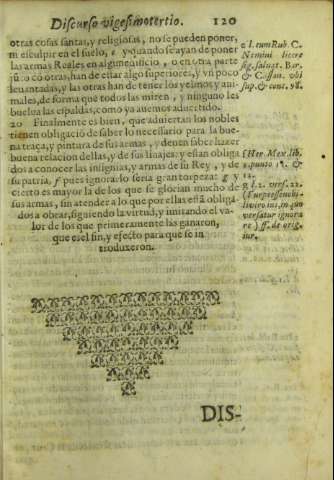 Discurso vigesimotertio. 120
otras cosas santas, y religiosas, no se pueden poner,
ni esculpir en el suelo, e y quando se ayan de poner
las armas Reales en algun edificio, o en otra parte
jũto cõ otras, han de estar algo superiores, y vn poco
leuantadas, y las otras han de tener los yelmos y ani-
males, de forma que todos las miren, y ninguno les
buelua las espaldas, como ya auemos aduertido.
20 Finalmente es bien, que aduiertan los nobles
tienen obligaciõ de saber lo necessario para la bue-
na traça, y pintura de sus armas, y deuen saber hazer
buena relacion dellas, y de sus linajes, y estan obliga
dos a conocer las insignias, y armas de su Rey, y de
su patria, f pues ignorarlo seria gran torpeza: g y
cierto es mayor la de los que se glorian mucho de
sus armas, sin atender a lo que por ellas estã obliga
dos a obrar, siguiendo la virtud, y imitando el va-
lor de los que primeramente las ganaron,
que es el fin, y efecto para que se in
troduxeron.
e l. tum Rub. C.
Nemini licere
sig. saluat. Bar.
& Cassan. vbi
sup. & conc. 98.
f Her Mex. lib.
g l. 2. vers. 22.
re) ff. de orig.
iur.
DIS-